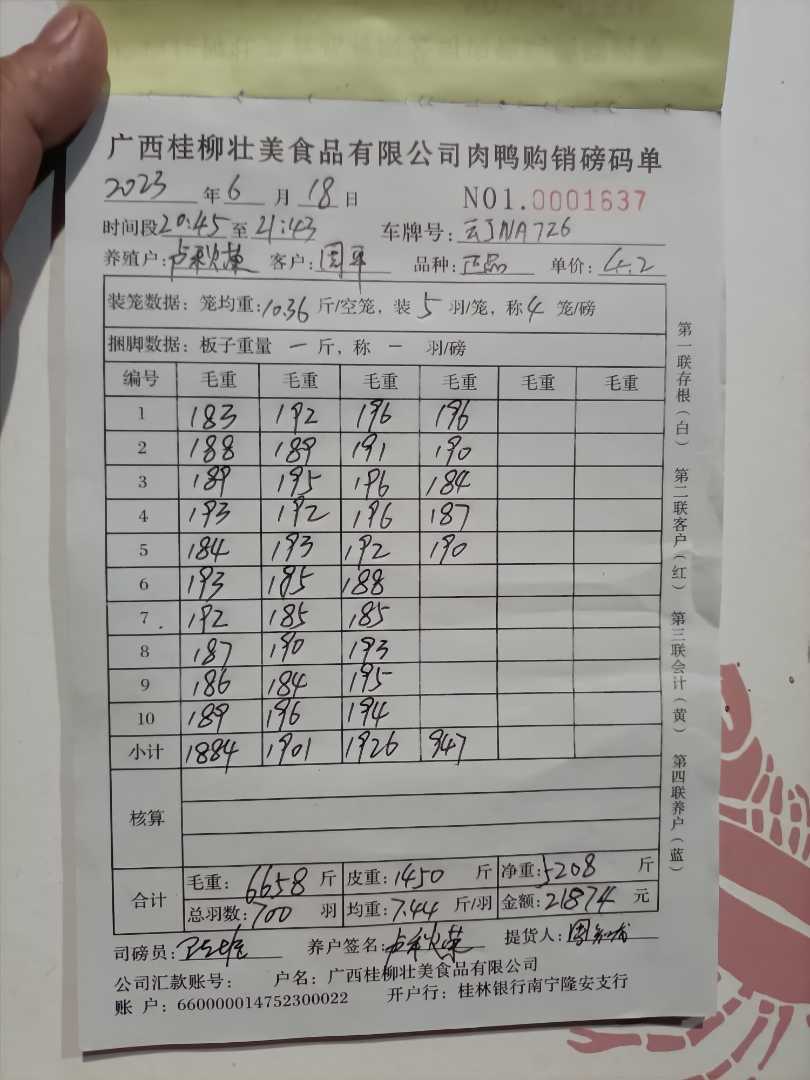 广西桂柳壮美食品有限公司肉鸭购销磅码单
2023年6月18日 NO1.0001637
时间段20:45至21:43 车牌号:云JNA726
养殖户: 客户:周平 品种:正品 单价:4.2
装笼数据:笼均重:10.36斤/空笼,装5羽/笼,称4笼/磅
捆脚数据:板子重量 一 斤,称 一 羽/磅
编号 毛重 毛重 毛重 毛重 毛重 毛重
1 183 192 196 196
2 188 189 191 190
3 189 195 196 184
4 193 192 196 187
5 184 193 192 190
6 193 185 188
7 192 185 185
8 187 190 193
9 186 184 195
10 189 196 194
小计 1884 1901 1926 947
核算
合计 毛重:6658斤 皮重:1450斤 净重:5208斤
总羽数:700羽 均重:7.44斤/羽 金额:21874元
司磅员: 养户签名: 提货人:
公司汇款账号: 户名:广西桂柳壮美食品有限公司
账 户:660000014752300022 开户行:桂林银行南宁隆安支行
第一联存根(白) 第二联客户(红) 第三联会计(黄) 第四联养户(蓝)